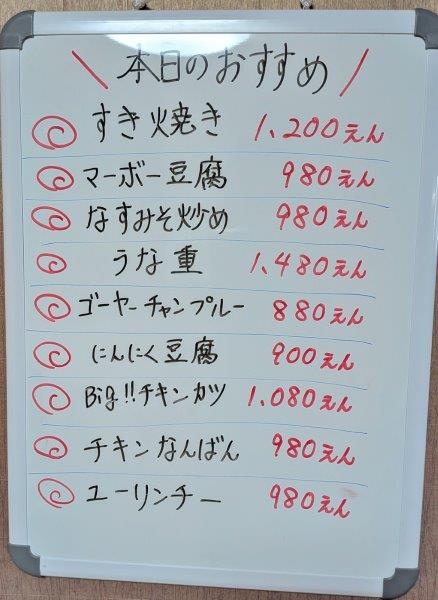 本日のおすすめ
すき焼き 1,200えん
マーボー豆腐 980えん
なすみそ炒め 980えん
うな重 1,480えん
ゴーヤーチャンプルー 880えん
にんにく豆腐 900えん
Big!!チキンカツ 1,080えん
チキンなんばん 980えん
ユーリンチー 980えん